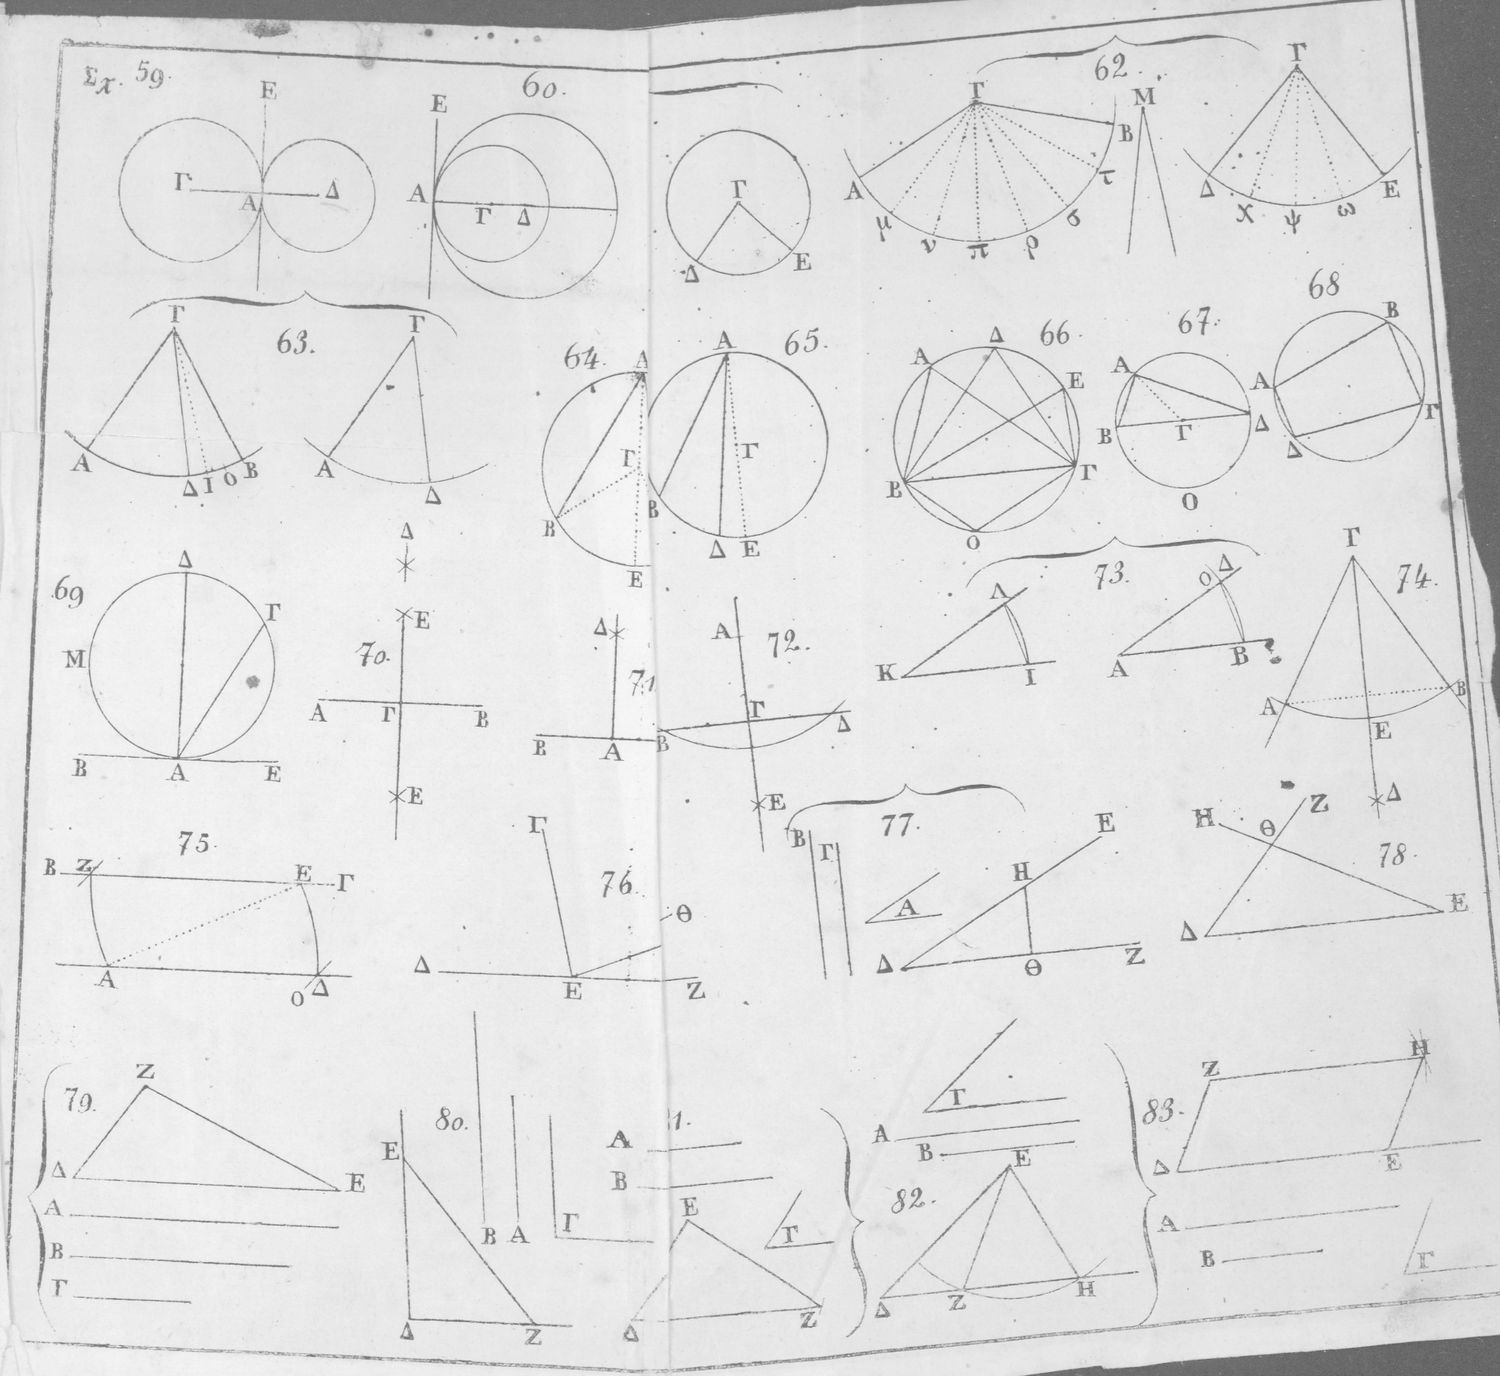 Σχ. 59.
Ε
Γ Δ
Α
60.
Ε
Α
Γ Δ
Γ
Δ Ε
62.
Γ
Β
Α
μ ν π ρ σ τ
Μ
Γ
Δ Ε
χ ψ ω
63.
Γ
Α Δ Ι Ο Β
Γ
Α Δ
64.
Α
Γ
Β
Ε
65.
Α
Γ
Β
Δ Ε
66.
Α Δ Ε
Β Γ
Ο
67.
Α
Β Γ Δ
Ο
68
Β
Α Γ
Δ
69
Δ
Γ
Μ
Β Α Ε
70.
Δ
Ε
Α Γ Β
Ε
71
Δ
Β Α
72.
Α
Γ
Β Δ
Ε
73.
Λ
Κ Ι
Ο Δ
Α Β
74.
Γ
Α Β
Ε
Δ
75.
Β Ζ Ε Γ
Α Ο Δ
76.
Γ
Θ
Δ Ε Ζ
77.
Β Γ
Α
Ε
Η
Δ Θ Ζ
78.
Η Θ Ζ
Δ Ε
79.
Ζ
Δ Ε
Α
Β
Γ
80.
Ε
Β Α Γ
Δ Ζ
1.
Α
Β
Ε
Γ
Δ Ζ
82.
Γ
Α
Β
Ε
Δ Ζ Η
83.
Ζ Η
Δ Ε
Α
Β
Γ